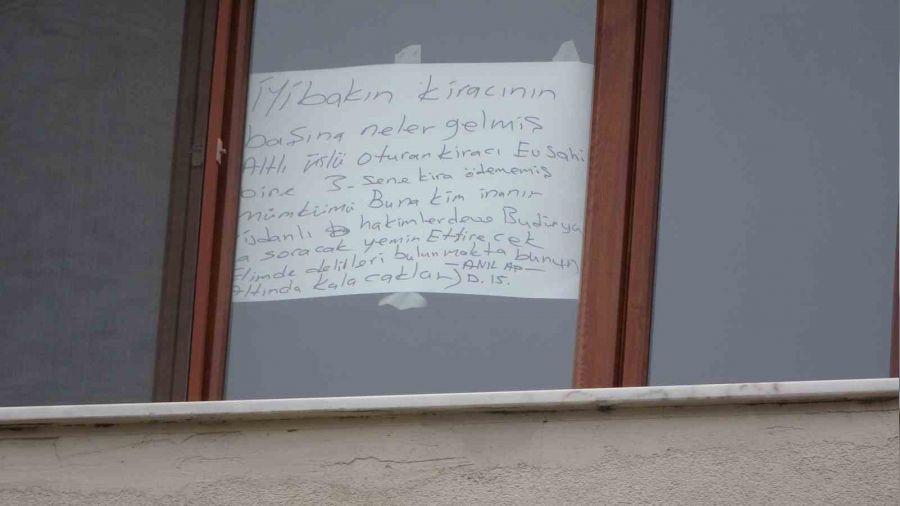 İyi bakın kiracının
başına neler gelmiş
Altlı üstlü oturan kiracı Ev Sahi
bine 3. sene kira ödememiş
mümkümü Buna kim inanır
hakimlerdeve Budünya
a soracak yemin Ettirecek
Elimde delilleri bulunmakta bunun
Altında kalacaklar) -ANIL AP-
D. 15.